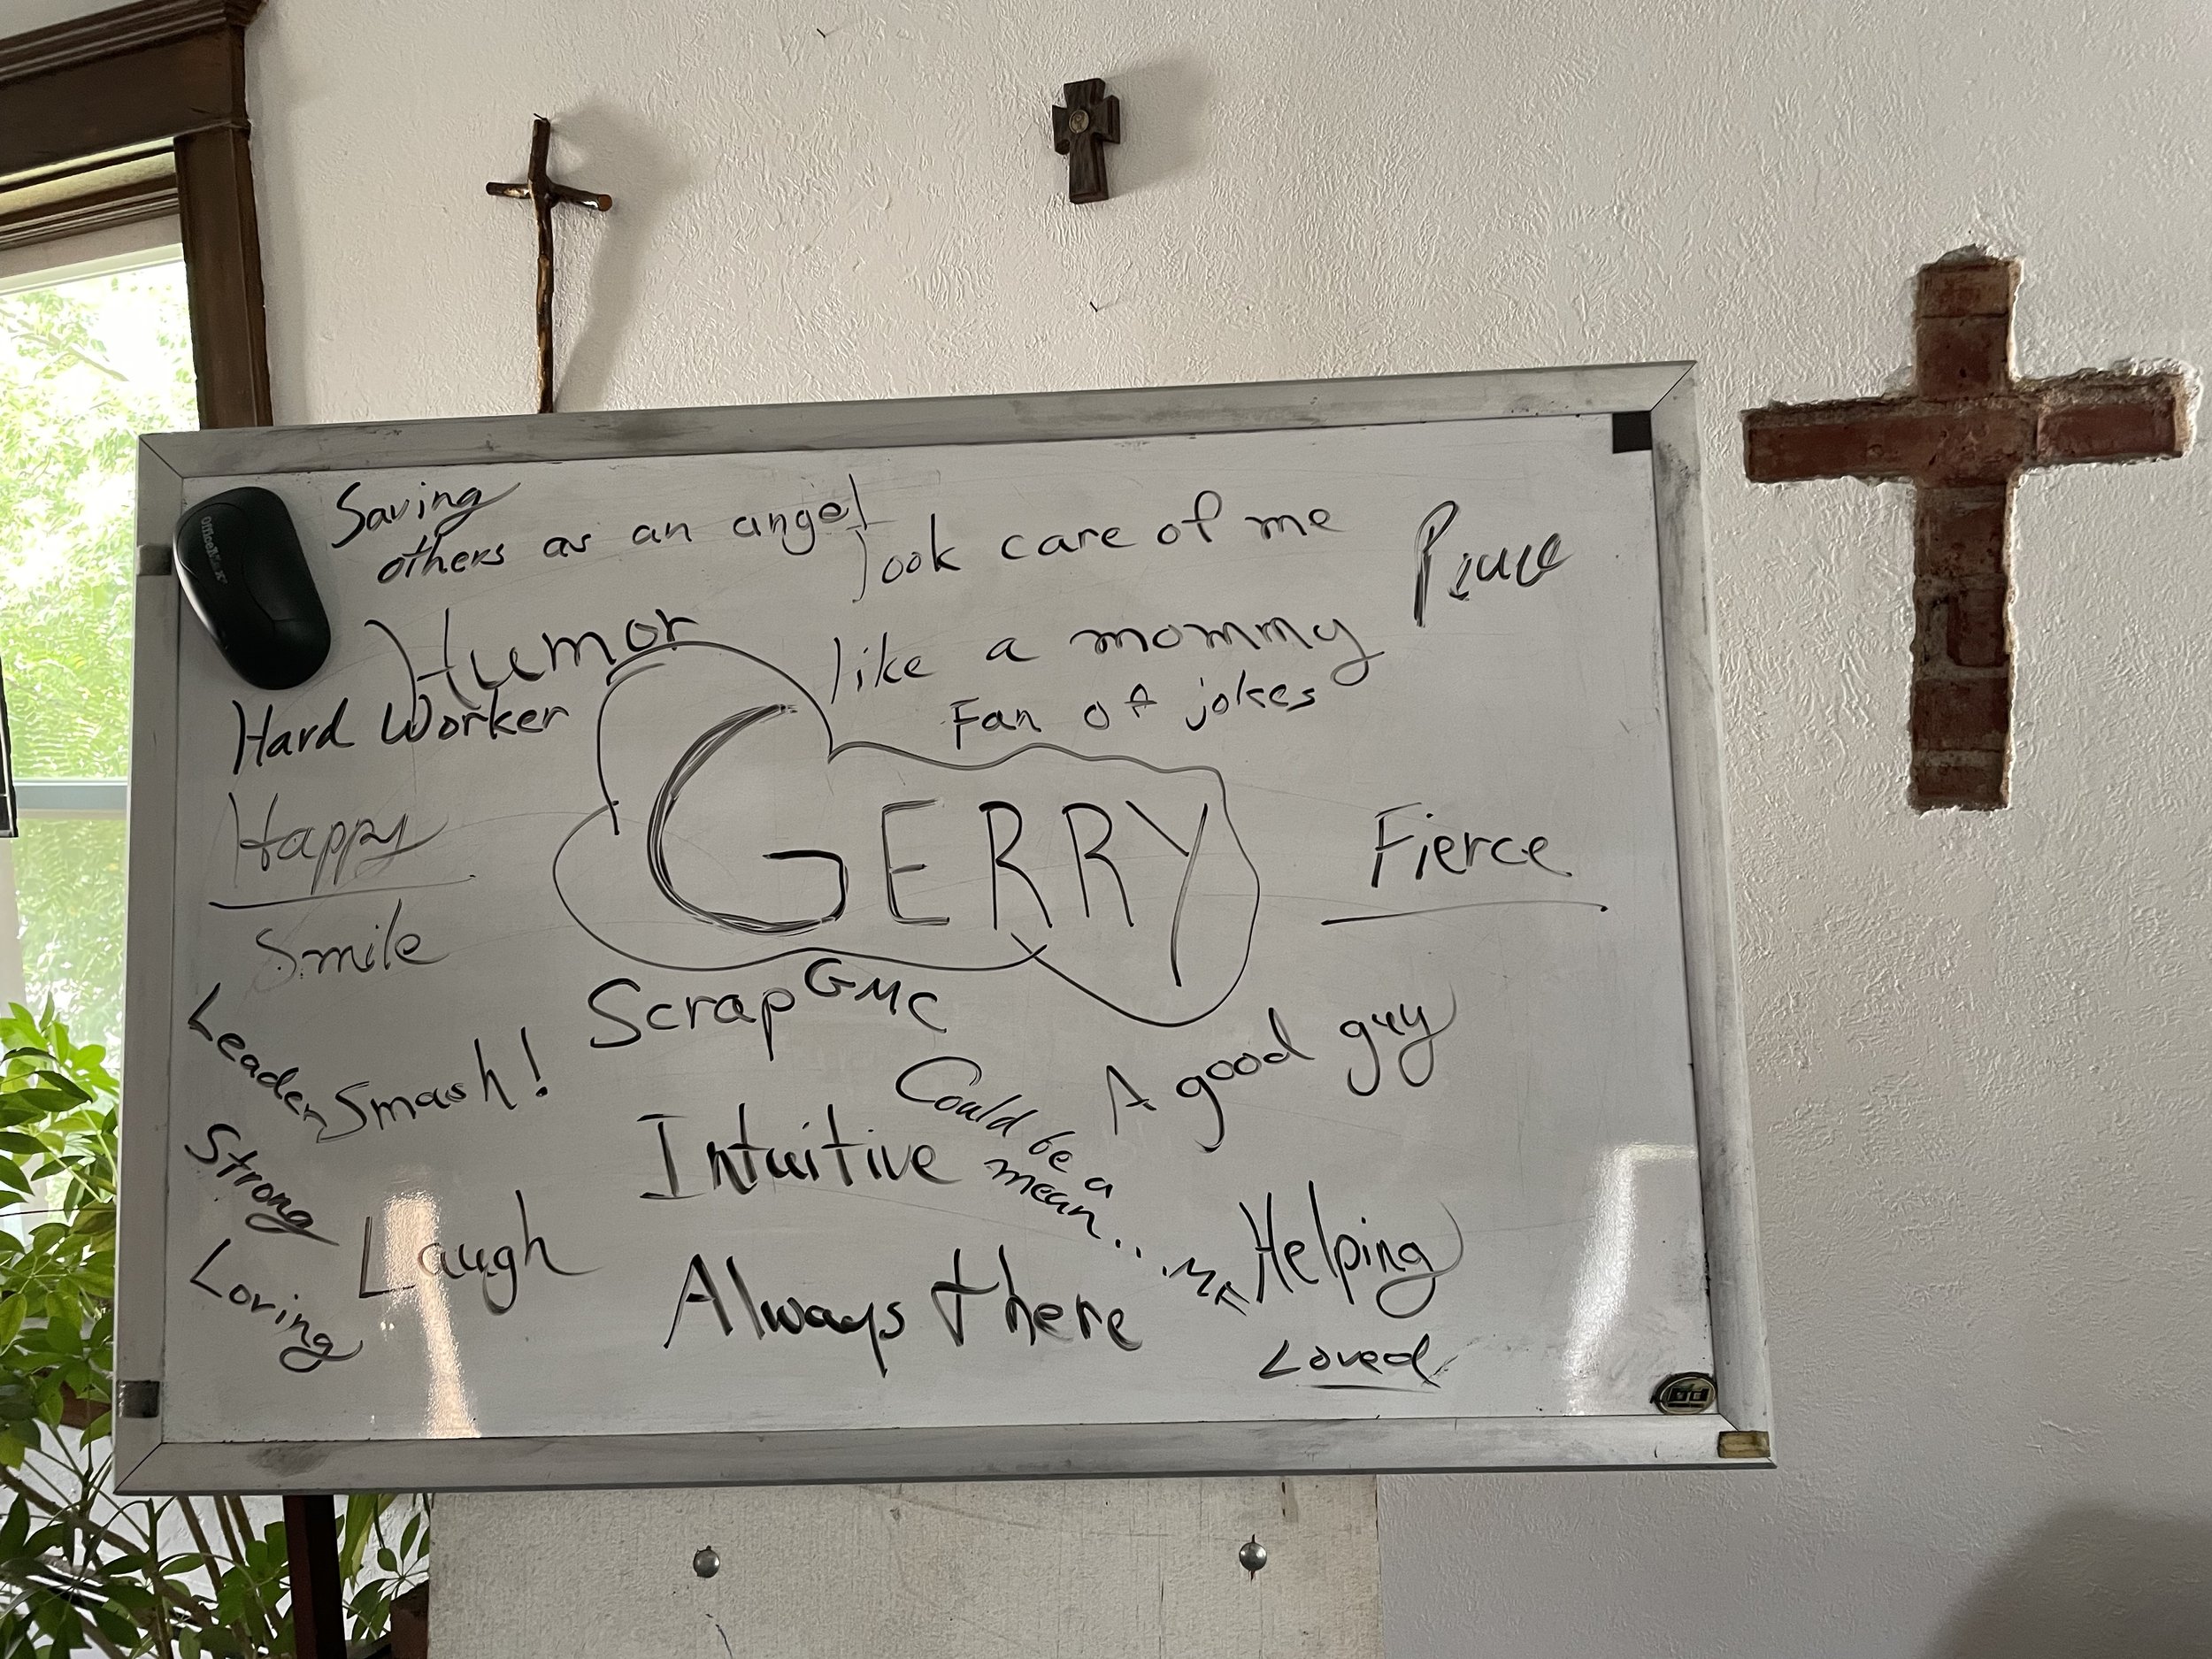 Saving
others as an angel
Took care of me
like a mommy
Humor
Fan of jokes
Hard Worker
GERRY
Happy
Fierce
Smile
Scrap GMC
Leader
Smash!
A good guy
Could be a
mean...
Intuitive
Strong
Laugh
Helping
Loving
Always there
Loved
OfficeMax